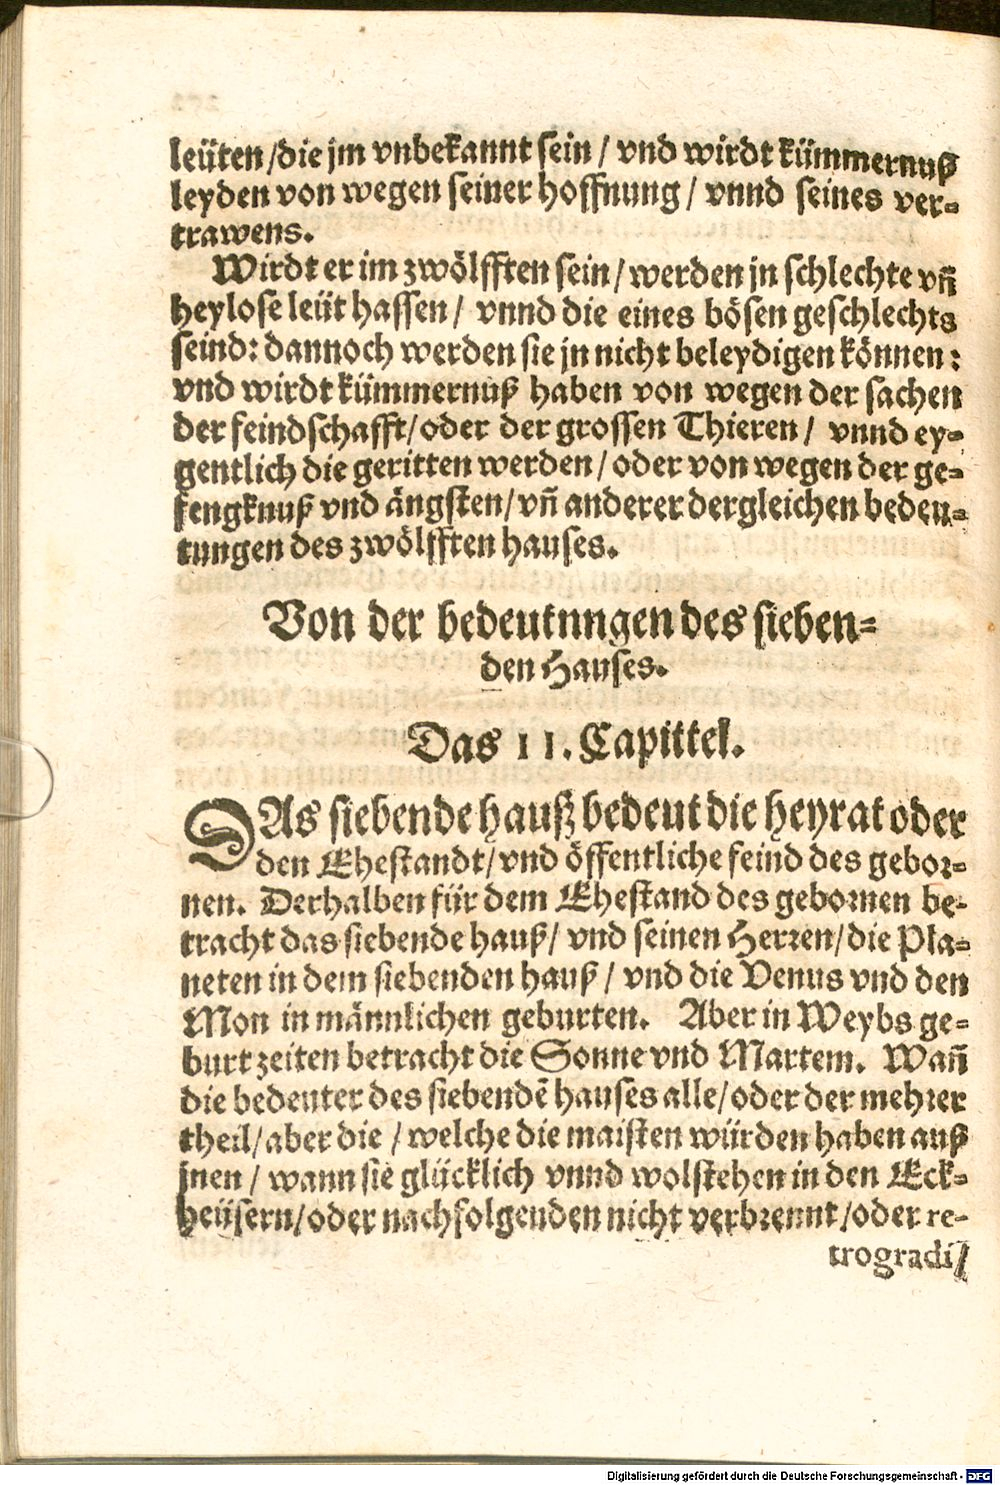 leüten /die jm vnbekannt sein / vnd wirdt kümmernuß
leyden von wegen seiner hoffnung / vnnd seines ver-
trawens.
Wirdt er im zwölfften sein / werden jn schlechte vñ
heylose leüt hassen / vnnd die eines bösen geschlechts
seind: dannoch werden sie jn nicht beleydigen können:
vnd wirdt kümmernuß haben von wegen der sachen
der feindschafft/oder der grossen Thieren / vnnd ey-
gentlich die geritten werden / oder von wegen der ge-
fengknuß vnd ängsten/vñ anderer dergleichen bedeu-
tungen des zwölfften hauses.
Von der bedeutnngen des sieben-
den Hauses.
Das 11. Capittel.
DAs siebende hauß bedeut die heyrat oder
den Ehestandt/vnd öffentliche feind des gebor-
nen. Derhalben für dem Ehestand des gebornen be-
tracht das siebende hauß/ vnd seinen Herren/die Pla-
neten in dem siebenden hauß / vnd die Venus vnd den
Mon in männlichen geburten. Aber in Weybs ge-
burt zeiten betracht die Sonne vnd Martem. Wañ
die bedeuter des siebendē hauses alle/oder der mehrer
theil/aber die / welche die maisten würden haben auß
jnen / wann sie glücklich vnnd wolstehen in den Eck-
heüsern/oder nachfolgenden nicht verbrennt/oder re-
trogradi/
Digitalisierung gefördert durch die Deutsche Forschungsgemeinschaft - DFG